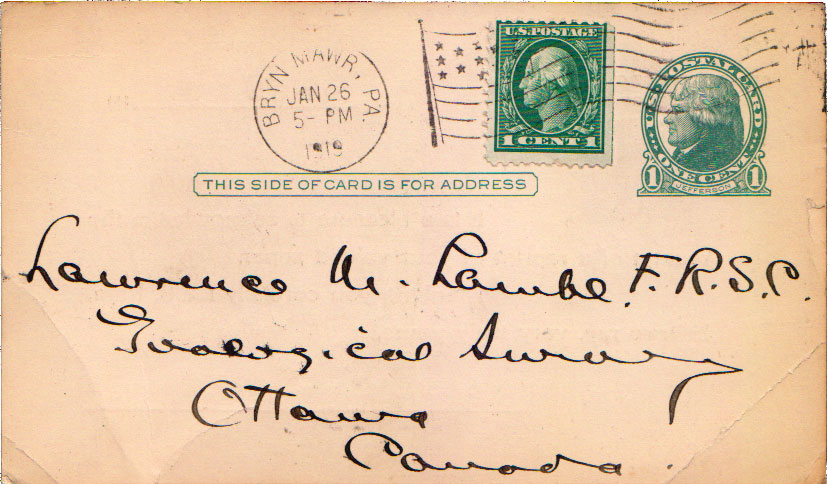 BRYN MAWR, PA
JAN 26
5- PM
1919
U.S. POSTAGE
1 CENT 1
U.S. POSTAL CARD
ONE CENT
1 JEFFERSON 1
THIS SIDE OF CARD IS FOR ADDRESS
Lawrence M. Lambe F.R.S.C.
Geological Survey
Ottawa
Canada.